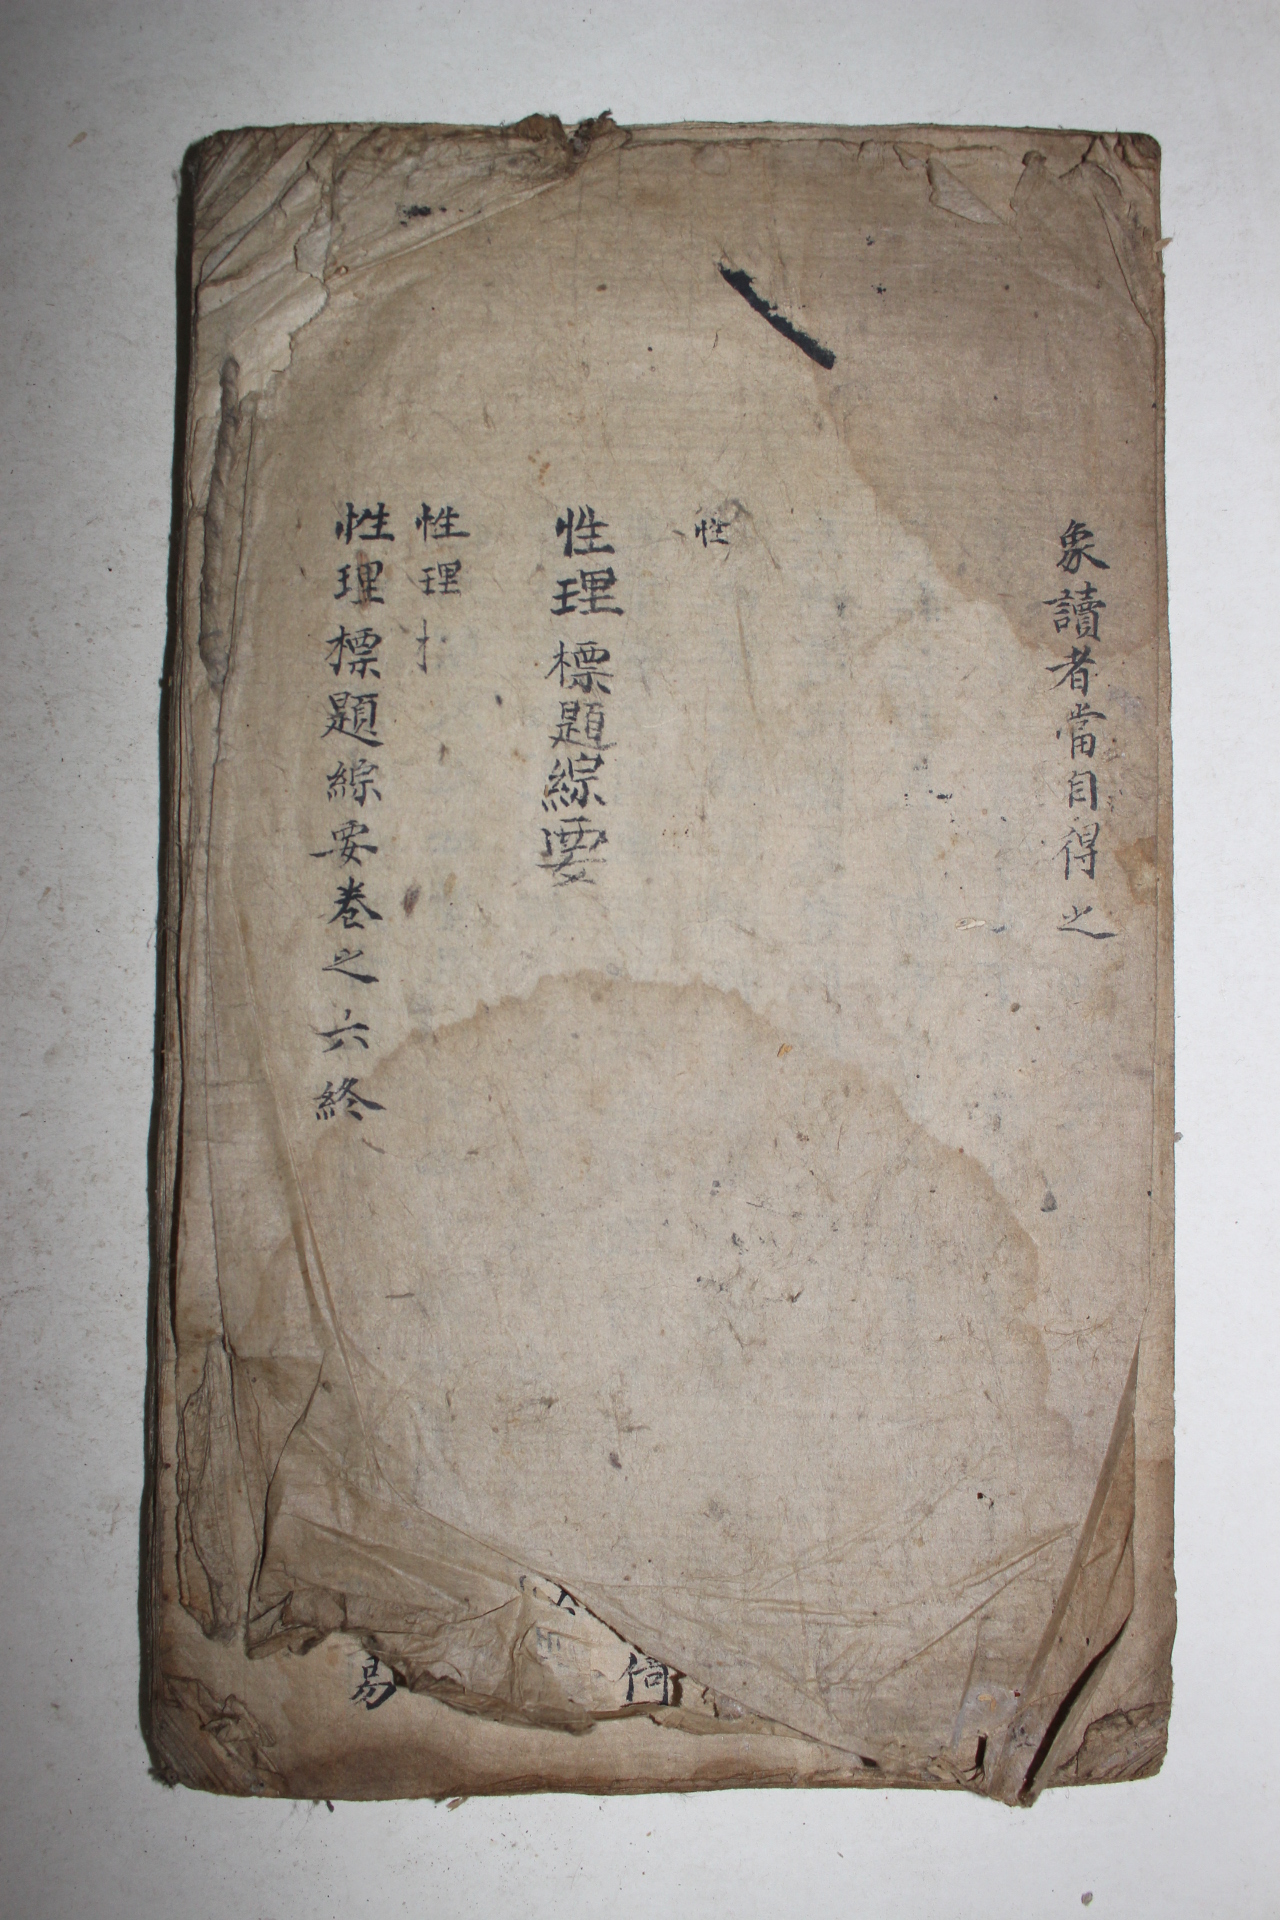 象讀者當自得之
性
性理標題綜要
性理
性理標題綜要卷之六終
倚
易